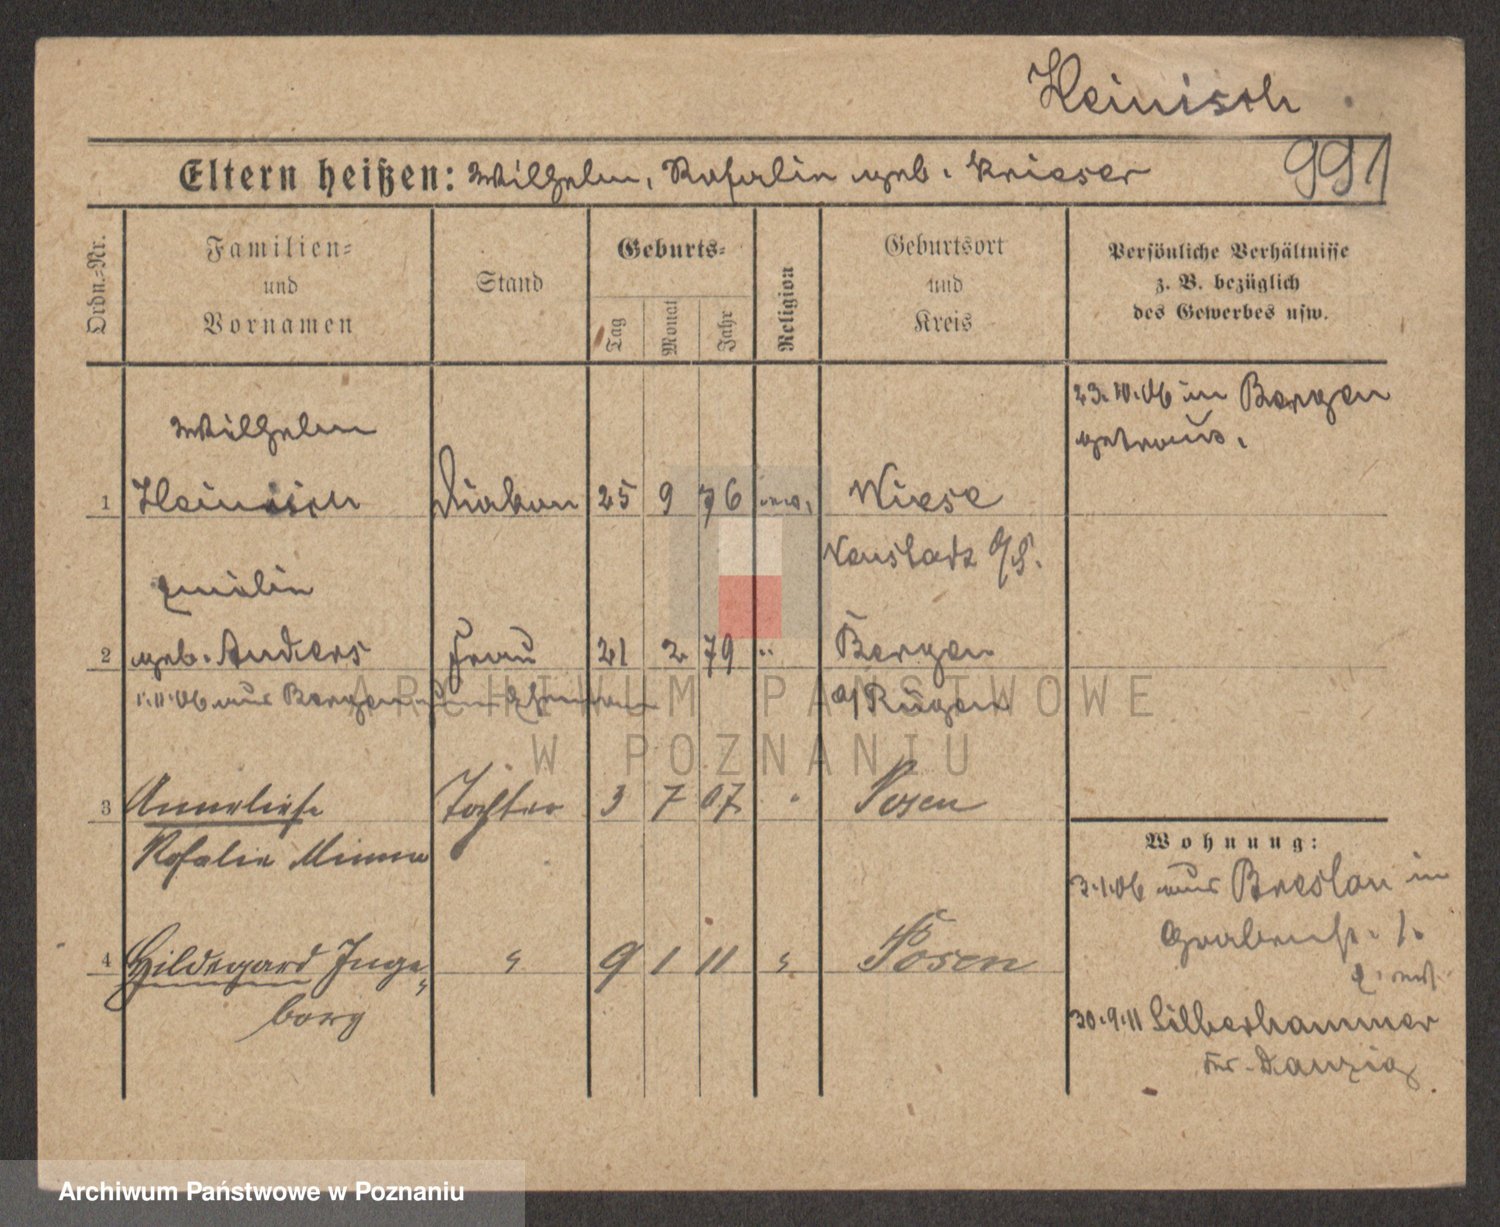 Heinisch
991
Eltern heißen: Wilhelm, Rosalie geb. Krieser
Ordn.-Nr.
Familien-
und
Vornamen
Stand
Geburts-
Tag
Monat
Jahr
Religion
Geburtsort
und
Kreis
Persönliche Verhältnisse
z. B. bezüglich
des Gewerbes usw.
23.10.06 in Bergen
getraut.
Wilhelm
1 Heinisch Diakon 25 9 76 ev. Wiese
Neustadt O/S.
Emilie
2 geb. Anders Frau 21 2 79 " Bergen
1.11.06 aus Bergen zum Ehemann a/Rügen
3 Anneliese Tochter 3 7 07 " Posen
Rosalie Minna
4 Hildegard Inge- " 9 1 11 " Posen
borg
Wohnung:
3.1.06 aus Breslau in
Grabenst. 1.
30.9.11 Silberhammer
Kr. Danzig
ARCHIWUM PAŃSTWOWE
W POZNANIU
Archiwum Państwowe w Poznaniu